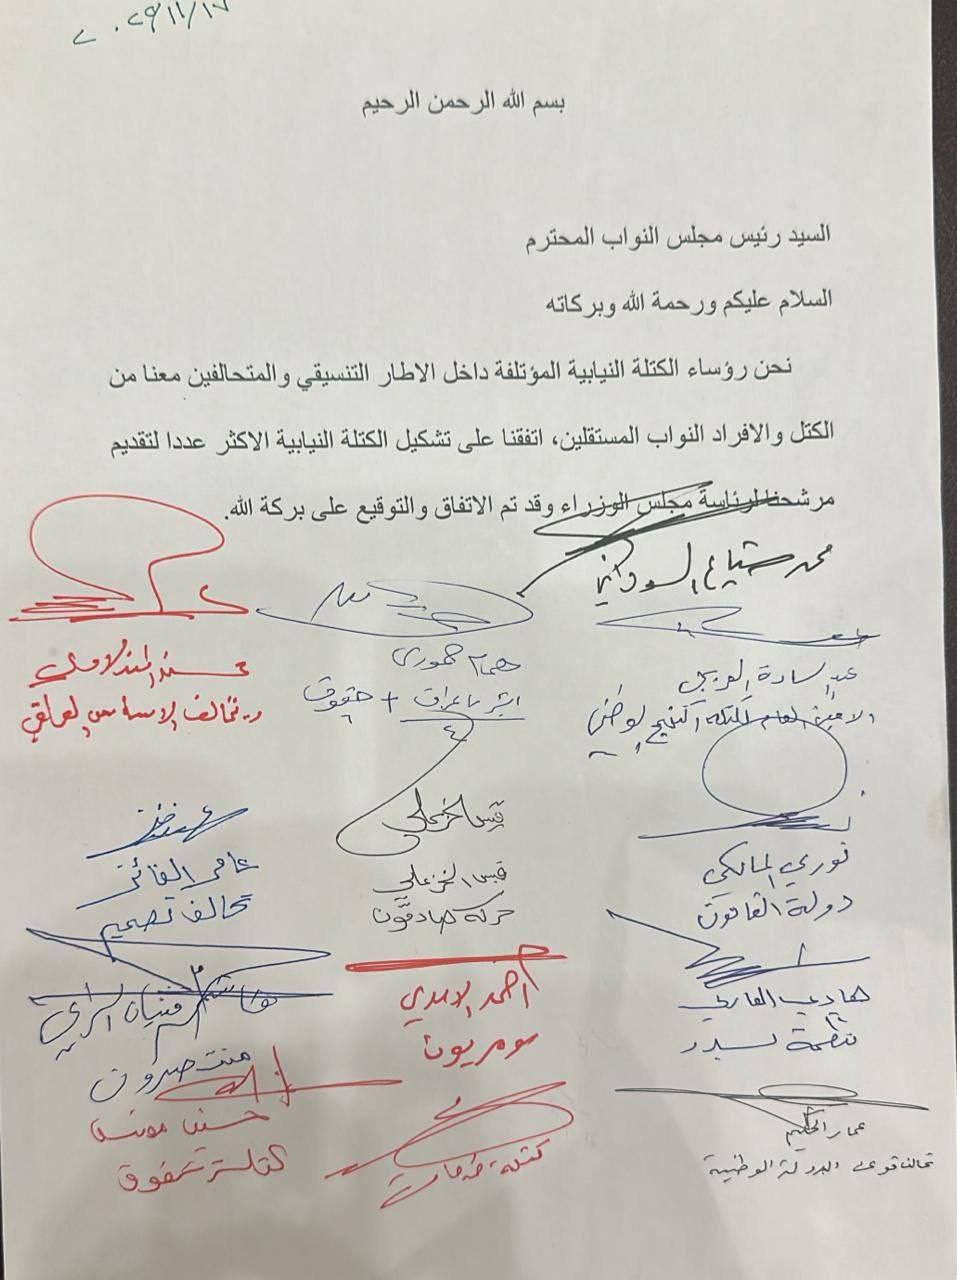 ٢٠٢٥/١١/١٧
بسم الله الرحمن الرحيم
السيد رئيس مجلس النواب المحترم
السلام عليكم ورحمة الله وبركاته
نحن رؤساء الكتلة النيابية المؤتلفة داخل الاطار التنسيقي والمتحالفين معنا من
الكتل والافراد النواب المستقلين، اتفقنا على تشكيل الكتلة النيابية الاكثر عددا لتقديم
مرشحنا لرئاسة مجلس الوزراء وقد تم الاتفاق والتوقيع على بركة الله.
محمد شياع السوداني
همام حمودي
ابشر يا عراق + حقوق
محسن المندلاوي
تحالف الاساس العراقي
عبد السادة الفريجي
الامين العام
نوري المالكي
دولة القانون
قيس الخزعلي
قيس الخزعلي
حركة صادقون
عامر الفائز
تحالف تصميم
هادي العامري
منظمة بدر
احمد الاسدي
سومريون
السراي
منتصرون
عمار الحكيم
تحالف قوى الدولة الوطنية
كتلة خدمات
حسين مونس
كتلة حقوق